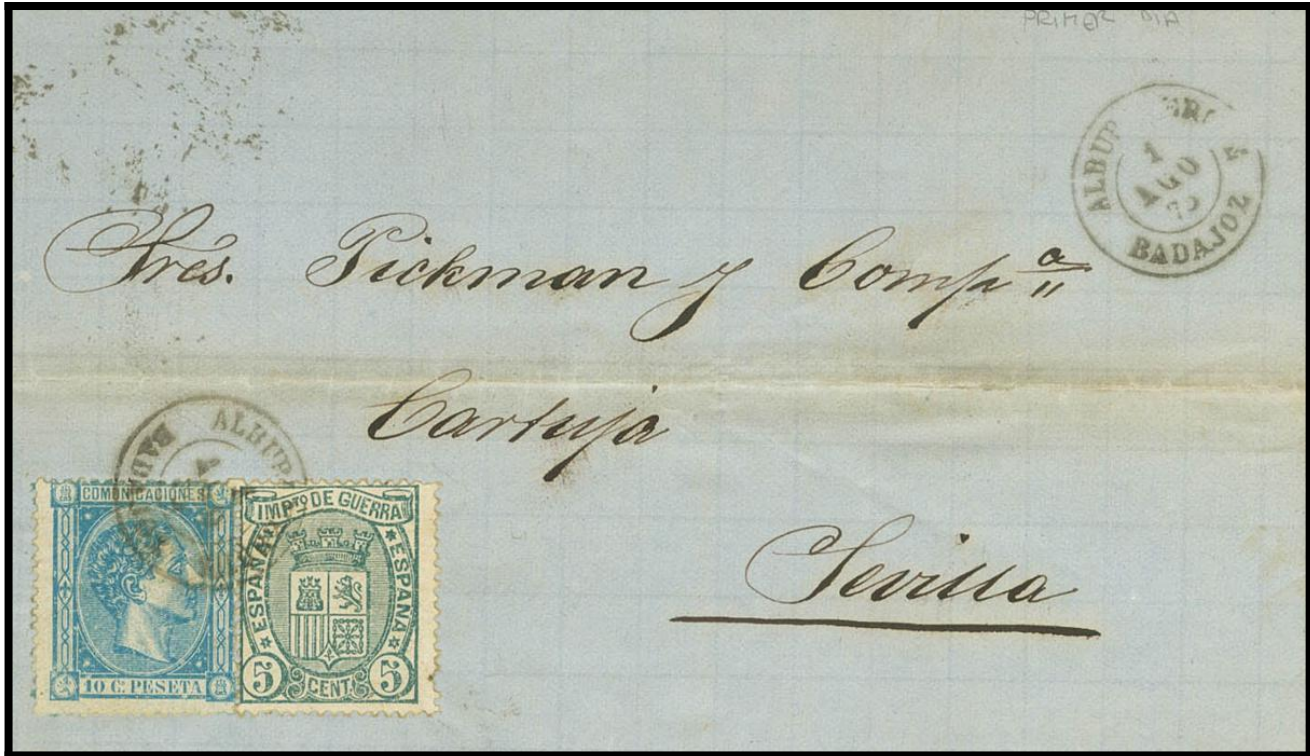 PRIMER DIA
ALBUR ERQ
1
AGO
75
BADAJOZ
Sres. Pickman y Compª
Cartuja
Sevilla
ALBUR
COMUNICACIONES
10 C. PESETA
IMPTO DE GUERRA
ESPAÑA
ESPAÑA
5 CENT. 5